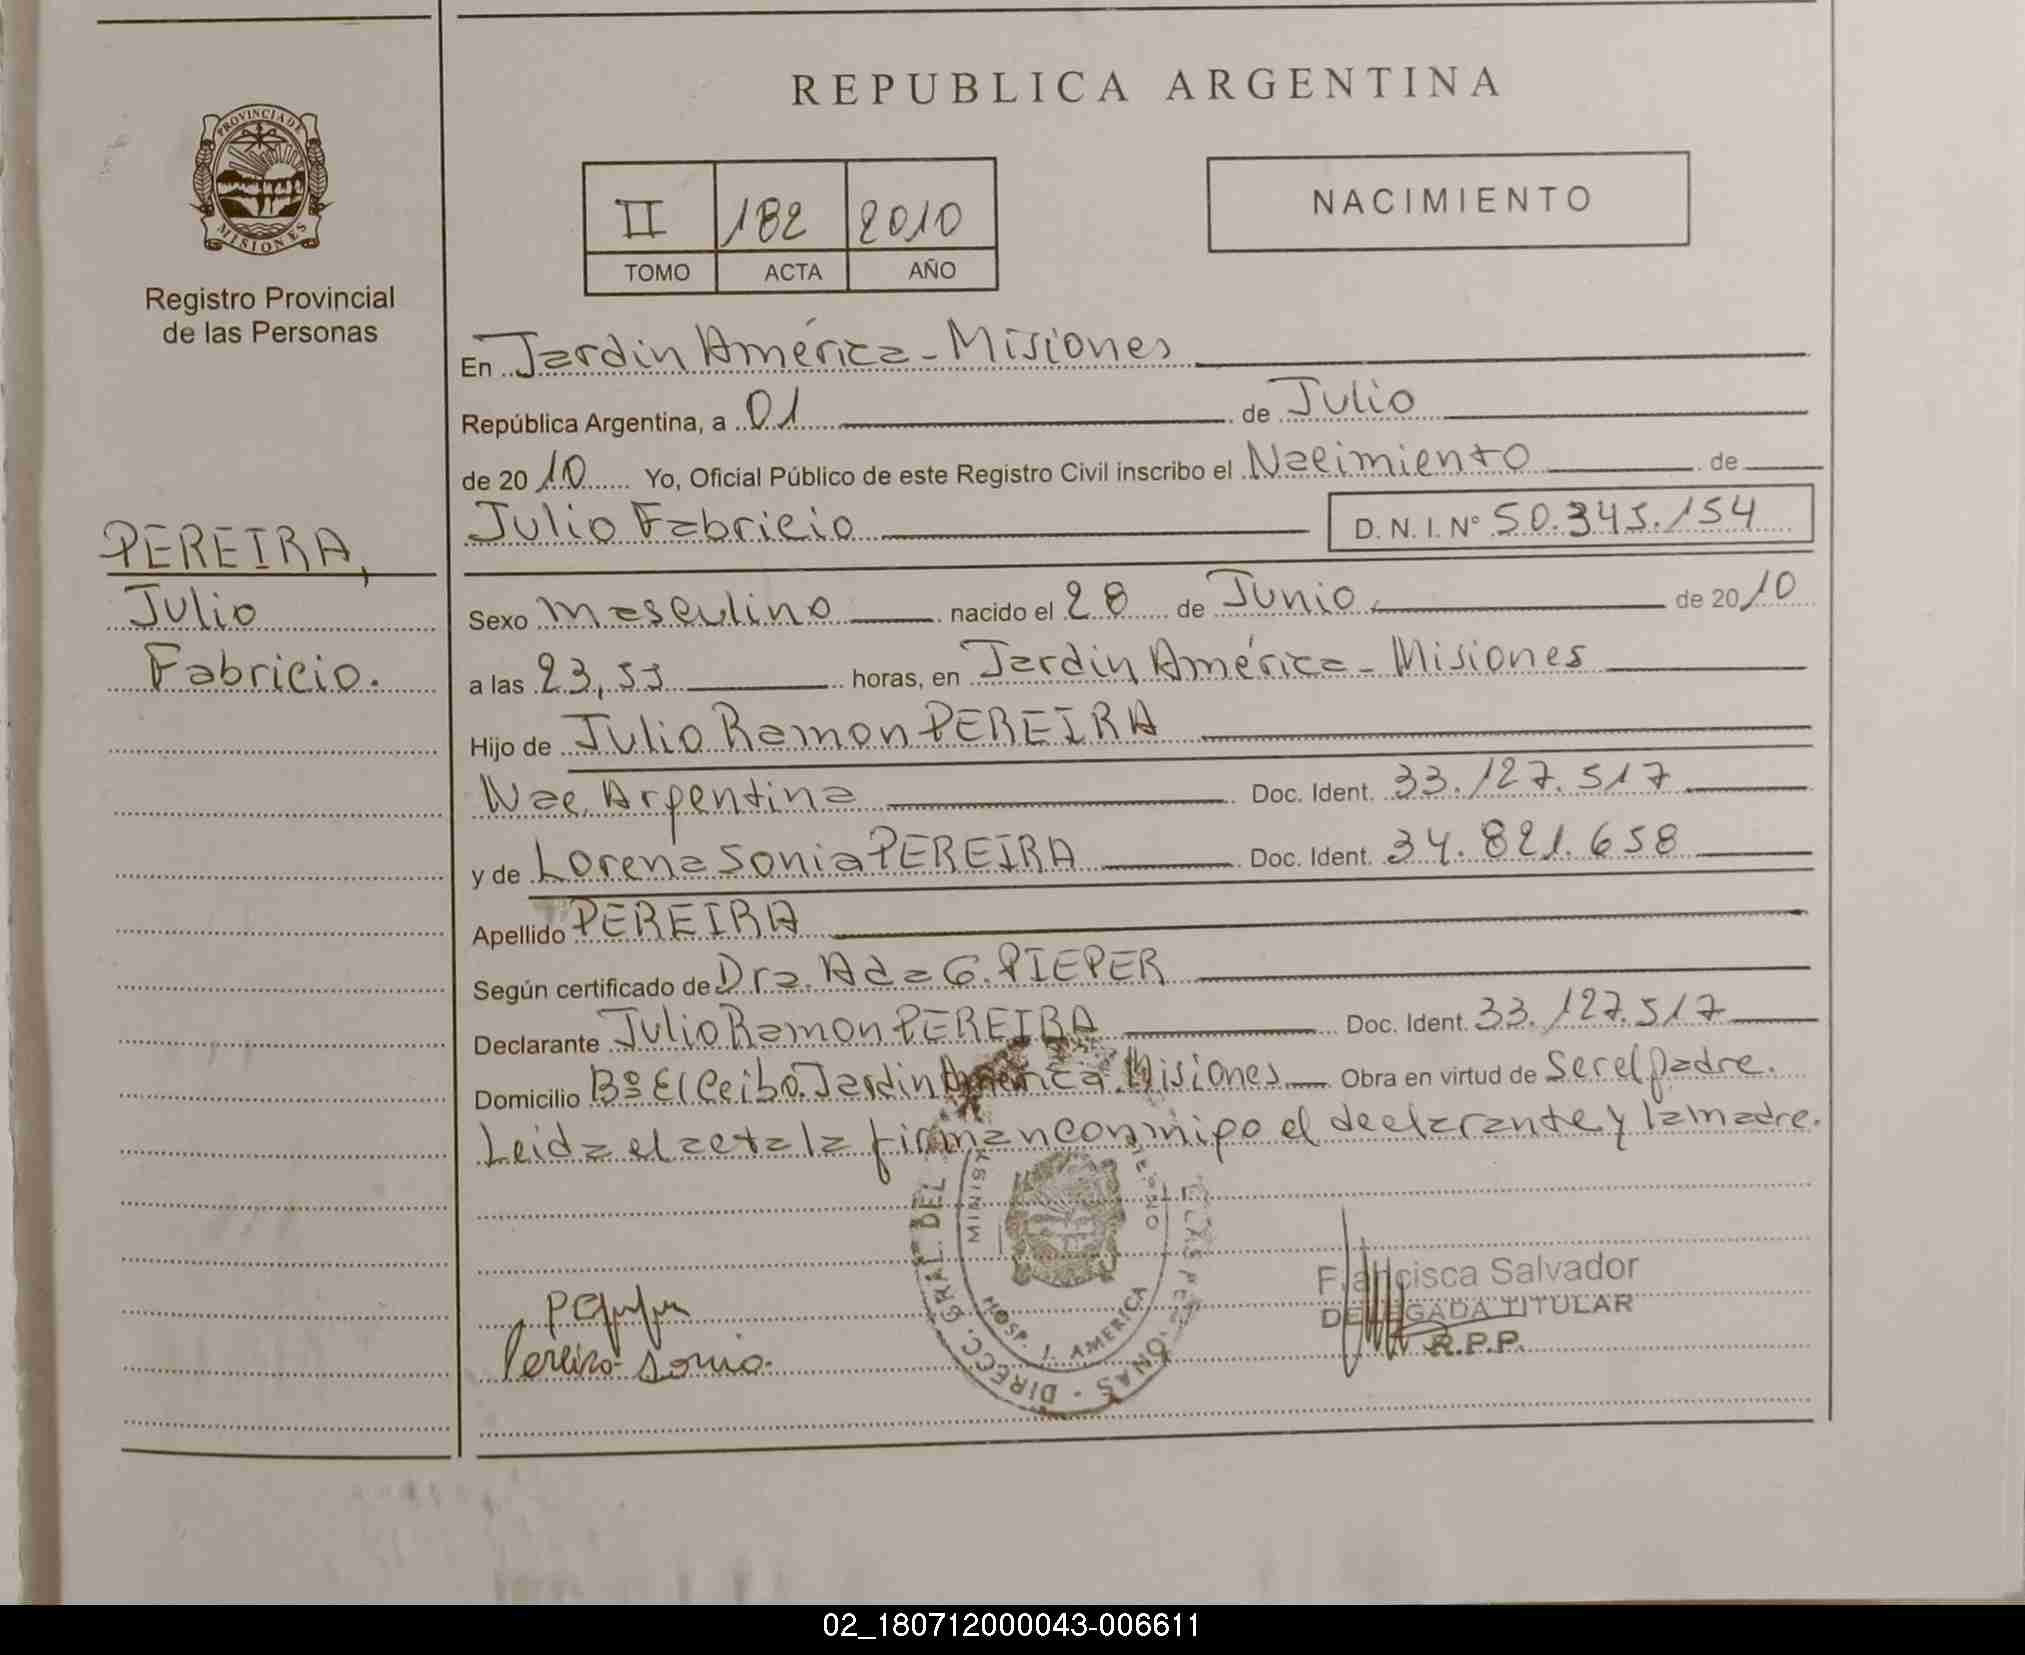 REPUBLICA ARGENTINA
PROVINCIA DE
MISIONES
Registro Provincial
de las Personas
II 182 2010
TOMO ACTA AÑO
NACIMIENTO
PEREIRA,
Julio
Fabricio.
En Jardin América - Misiones
República Argentina, a 01 de Julio
de 2010 Yo, Oficial Público de este Registro Civil inscribo el Nacimiento de
Julio Fabricio D.N.I. Nº 50.345.154
Sexo Masculino nacido el 28 de Junio de 2010
a las 23,55 horas, en Jardin América - Misiones
Hijo de Julio Ramon PEREIRA
Nac. Argentina Doc. Ident. 33.127.517
y de Lorena Sonia PEREIRA Doc. Ident. 34.821.658
Apellido PEREIRA
Según certificado de Dra. Ada G. PIEPER
Declarante Julio Ramon PEREIRA Doc. Ident. 33.127.517
Domicilio Bº El Ceibo. Jardin América. Misiones Obra en virtud de Ser el padre.
Leida el acta la firman conmigo el declarante y la madre.
DIRECC. GRAL. DEL
HOSP. J. AMERICA
Pereira Sonia.
Francisca Salvador
DELEGADA TITULAR
R.P.P.
02_180712000043-006611